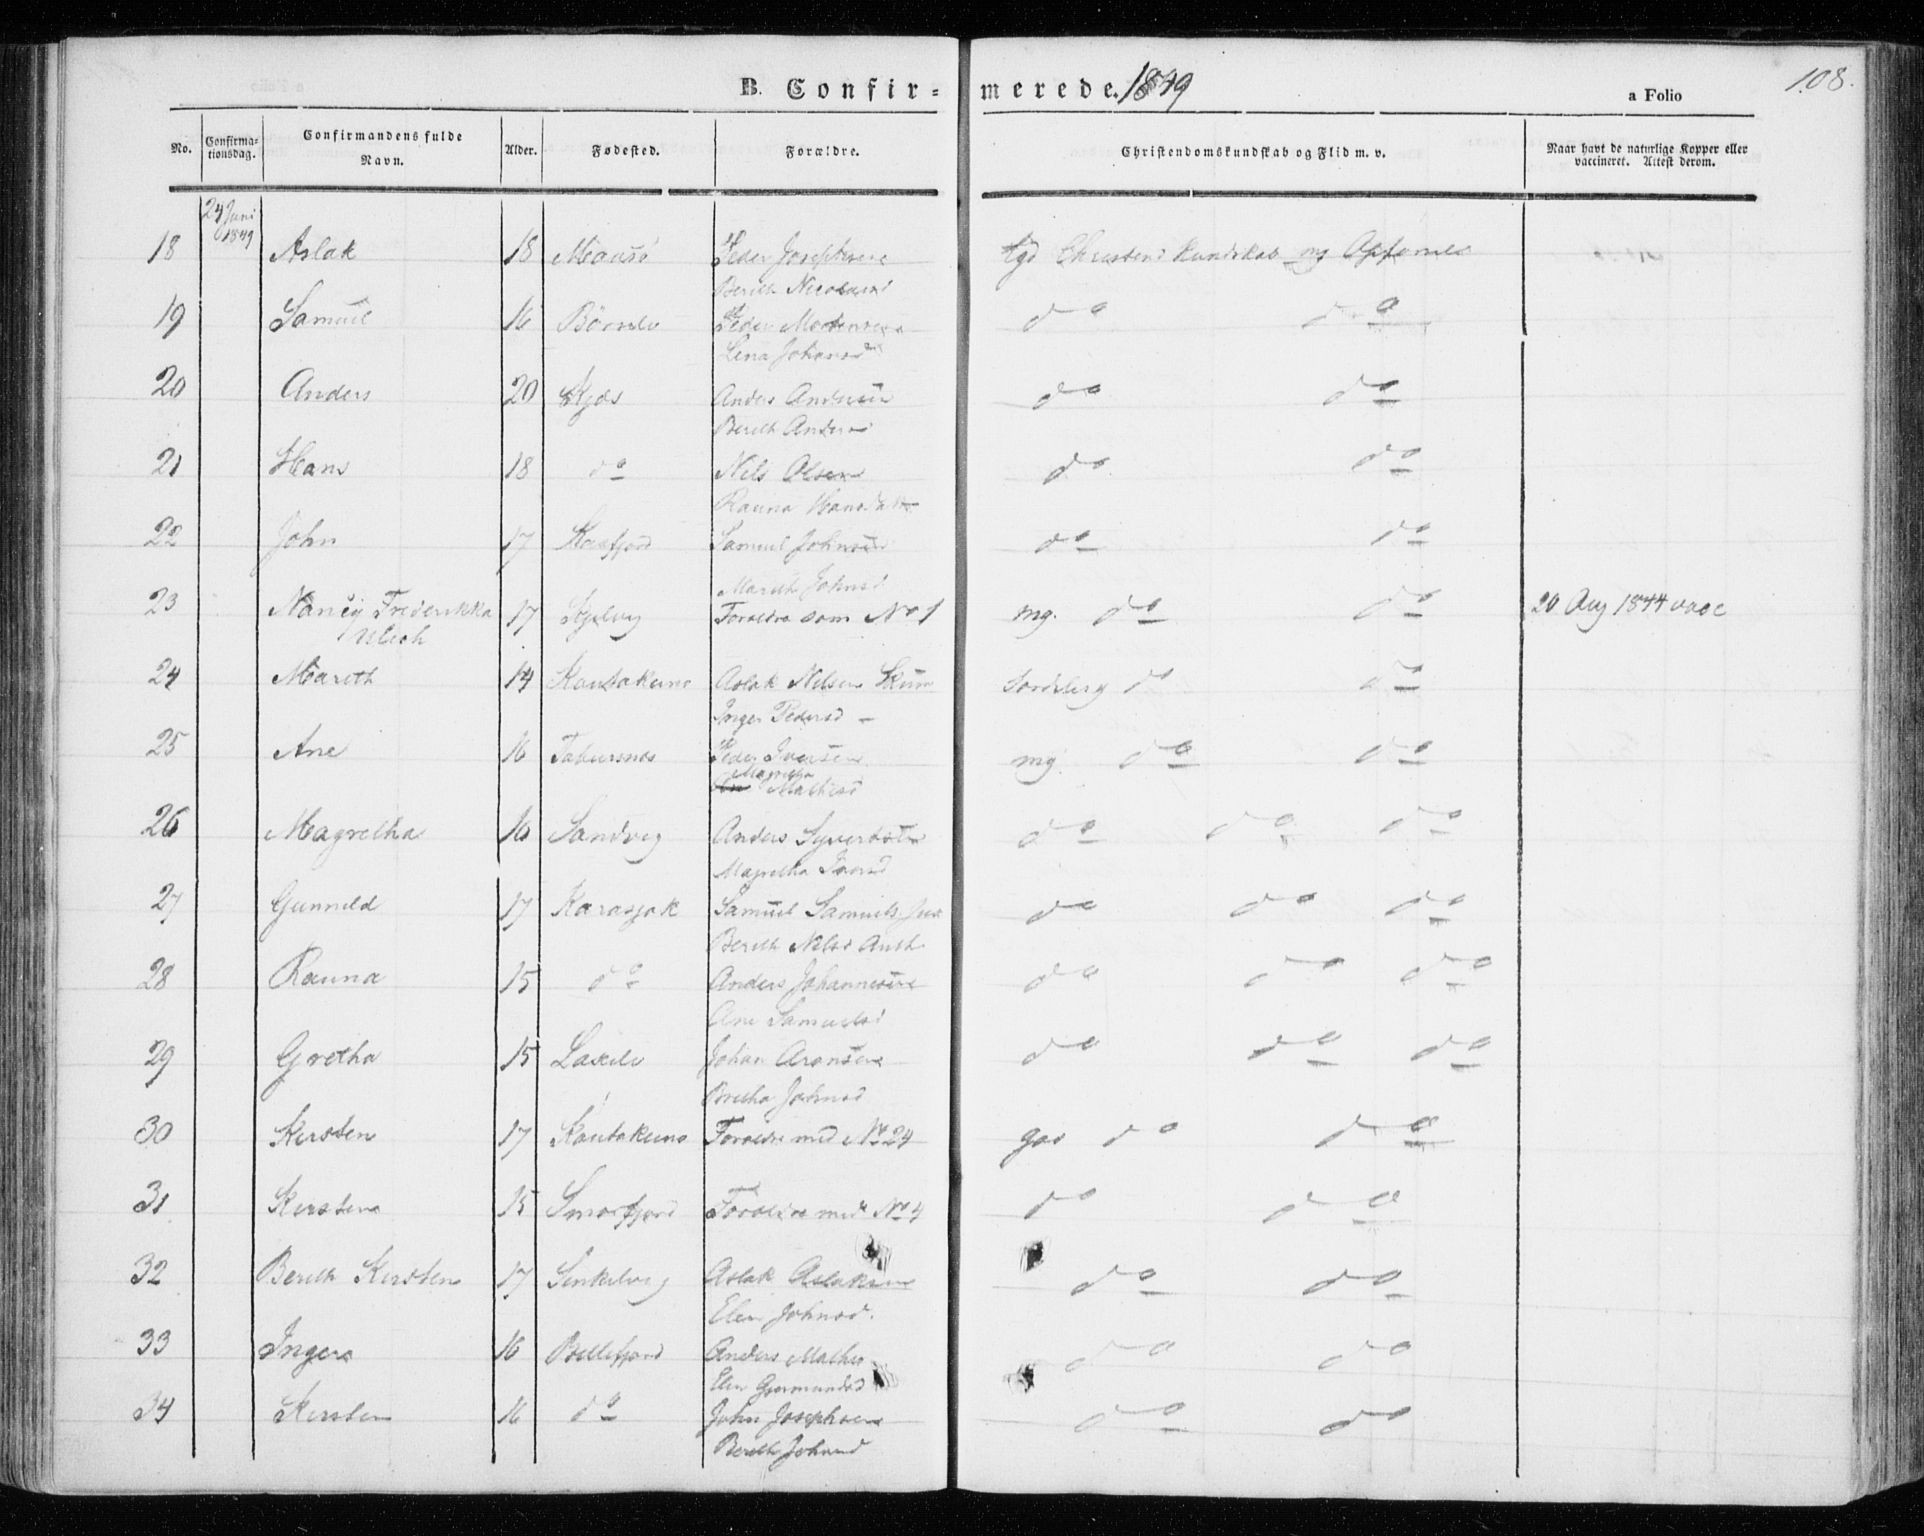 B. Confir=merede. 1849
a Folio
108.
No.
Confirma-
tionsdag.
Confirmandens fulde
Navn.
Alder.
Fødested.
Forældre.
Christendomskundskab og Flid m. v.
Naar havt de naturlige Kopper eller
vaccineret. Attest derom.
24 Juni
1849
18 Aslak 18 Maasö Peder Josephsen tgd Christend Kundskab og Opførsel
Berith Nicolaisd
19 Samuel 16 Börselv Peder Mortensen do do
Lena Johansd
20 Anders 20 Kjæs Anders Andersen do do
Berith Andersd
21 Hans 18 do Nils Olsen do do
Rauna Hansdatr
22 John 17 Kaafjord Samuel Johnsen do do
Marith Johnsd
23 Nancy Frederikka 17 Forældre som No 1 mg. do do 20 Aug 1844 vacc
Ulich
24 Mareth 14 Kautokeino Aslak Nilsen Skum do do
Inger Pedersd –
25 Ane 16 Peder Iversen mg do do
Magretha
Mathisd
26 Magretha 16 Sandvig Anders Syvertsen do do do
Magretha
27 Gunnild 17 Karasjok Samuel Samuels. do do do
Berith Nilsd
28 Rauna 15 do Anders Johannesen do do do
Ane Samuelsd
29 Gretha 15 Laxelv Johan Aronsen do do do
Johnsd
30 Kirsten 17 Kautokeino Forældre med No 24 god do do
31 Kirsten 15 Smorfjord Forældre med No 4 do do
32 Berith Kirsten 17 Aslak Aslaksen do do
Elen Johnsd.
33 Inger 16 Billefjord Anders Mathis do do
Elen Gjermundsd
34 Kirsten 16 do John Josephsen do do
Berith Johnsd